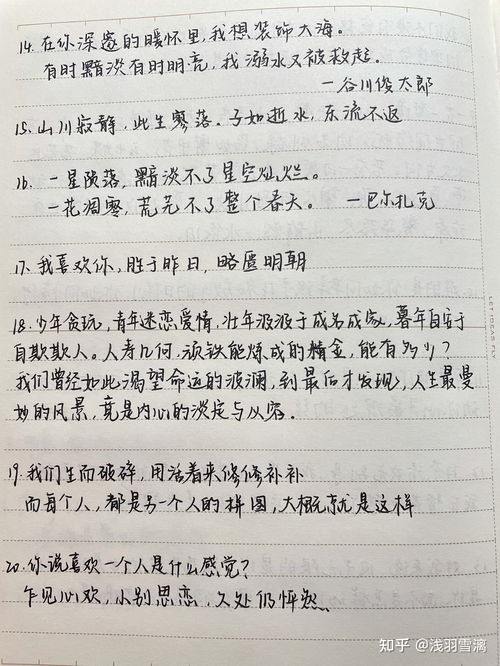 14. 在你深邃的暖怀里,我想装饰大海。
有时黯淡有时明亮,我溺水又被救起。
—谷川俊太郎
15. 山川寂静,此生寥落。子如逝水,东流不返
16. 一星陨落,黯淡不了星空灿烂。
一花凋零,荒芜不了整个春天。 —巴尔扎克
17. 我喜欢你,胜于昨日,略匿明朝
18. 少年贪玩,青年迷恋爱情,壮年汲汲于成名成家,暮年自安于
自欺欺人。人寿几何,顽铁能炼成的精金,能有多少?
我们曾经如此渴望命运的波澜,到最后才发现,人生最曼
妙的风景,竟是内心的淡定与从容。
19. 我们生而破碎,用活着来修修补补
而每个人,都是另一个人的拼图,大概就是这样
20. 你说喜欢一个人是什么感觉?
乍见心欢,小别思恋,久处仍怦然
LET IDEAS FLY
知乎 @浅羽雪漓